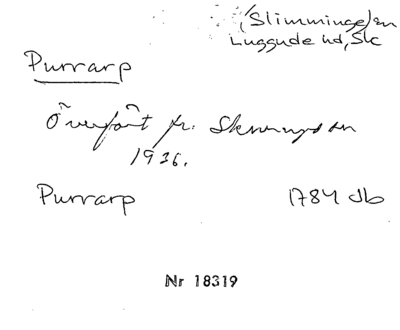 (Slimminge) sn
Luggude hd, Sk
Purrarp
Överfört fr.
1936.
Purrarp 1784 db
Nr 18319